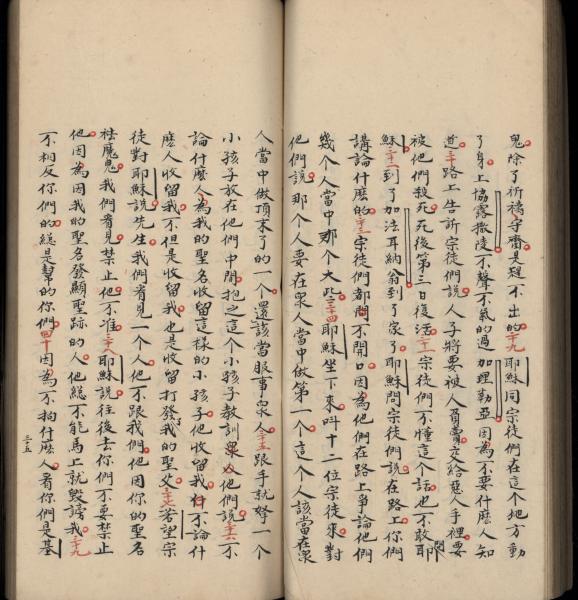 鬼除了祈禱守齋是趕不出的二十九耶穌同宗徒們在這個地方動
了身上協露撒陵不聲不氣的過加理勒亞因為不要什麽人知
道三十路上告訴宗徒們說人子將要被人賣交給惡人手裡要
被他們殺死死後第三日復活三十一宗徒們不懂這個話也不敢問耶
穌三十二到了加法耳納翁到了家了耶穌問宗徒們說在路上你們
講論什麽的三十三宗徒們都悶不開口因為他們在路上爭論他們
幾个人當中那个大些三十四耶穌坐下來叫十二位宗徒來對
他們說那个人要在眾人當中做第一个這个人該當在眾
人當中做頂末了的一个還該當服事眾人三十五跟手就拏一个
小孩子放在他們中間抱之這个小孩子教訓眾人他們說三十六不
論什麽人為我的聖名收留這樣的小孩子他收留我什不論什
麽人收留我不但是收留我也是收留打發了我的聖父三十七若望宗
徒對耶穌說先生我們看見一個人他不跟我們他因你的聖名
袪魔鬼我們看見禁止他不准三十八耶穌說往後去你們不要禁止
他因為因我的聖名發顯聖跡的人他總不能馬上就毀謗我三十九
不相反你們的總是幫的你們四十因為不拘什麽人看你們是基
三五